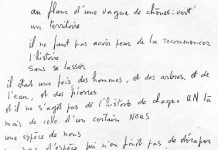 au flanc d'une vague de chênes-vert
un territoire
il ne faut pas avoir peur de la recommencer
l'histoire
sans se lasser
il était une fois des hommes, et des arbres, et de
l'eau, et des pierres
et il ne s'agit pas de l'histoire de chaque UN là
mais de celle d'un certain NOUS
une espèce de nous
d'espèce qui n'en finit pas de